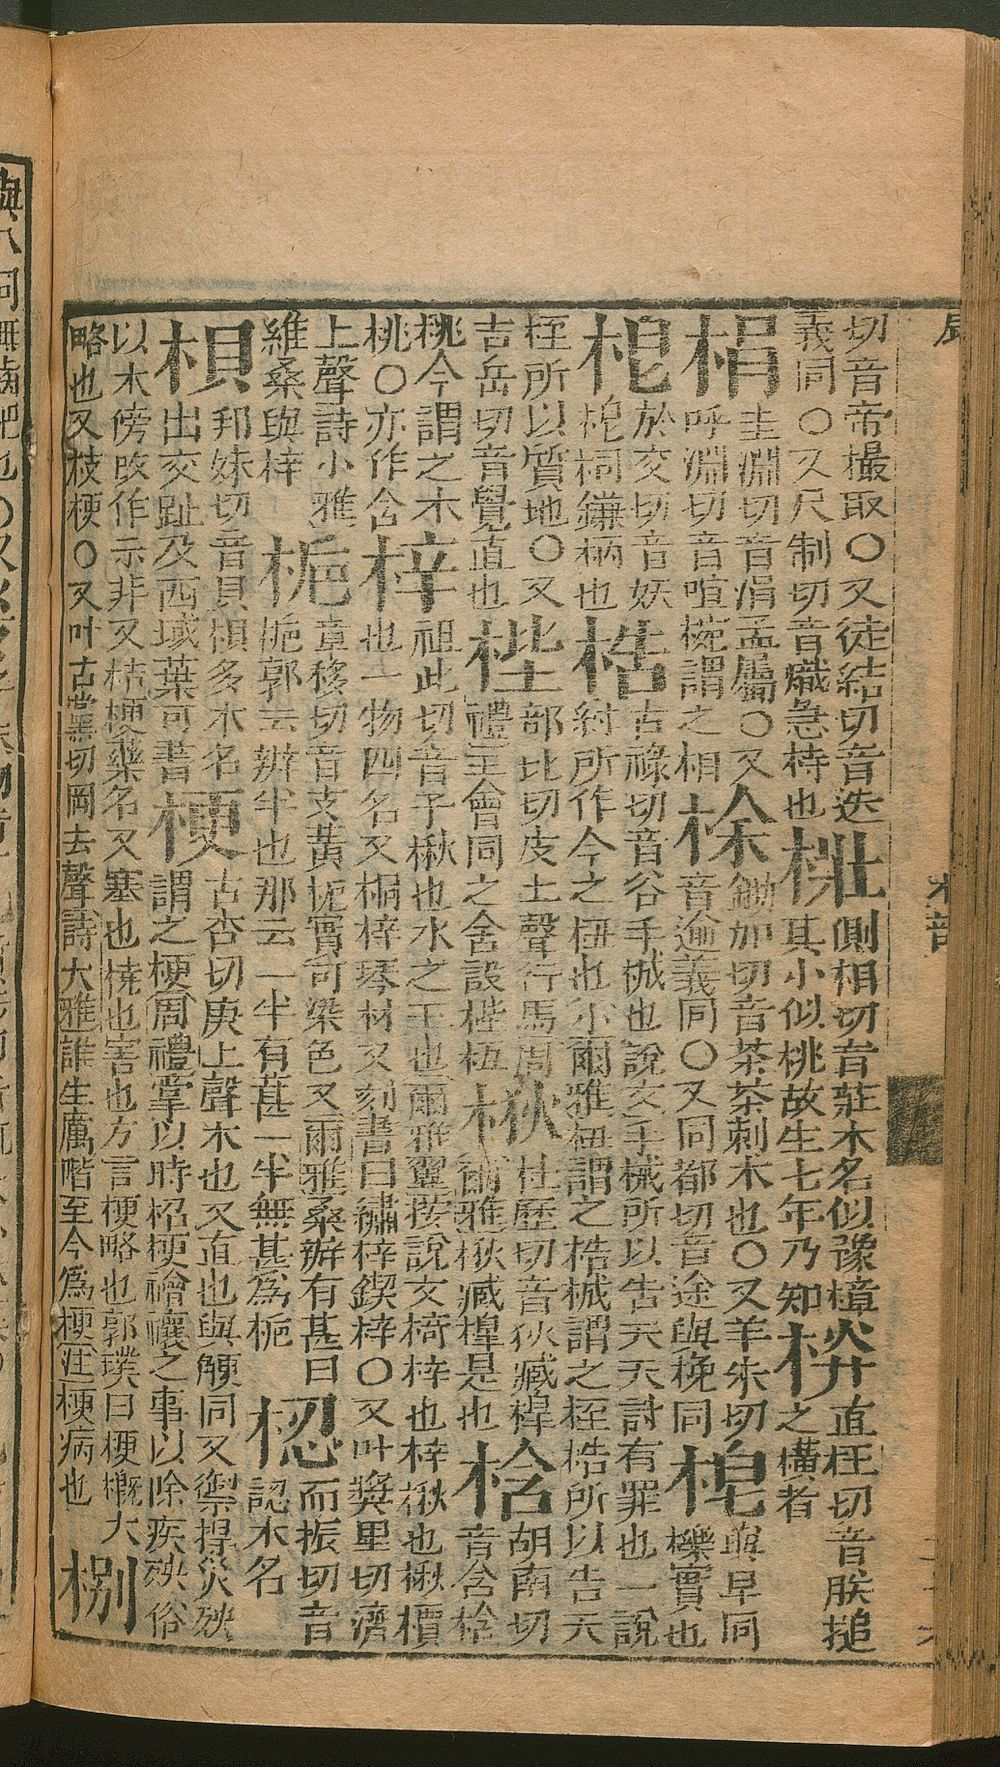 切音帝撮取〇又徒結切音迭
義同〇又尺制切音熾急持也
梉
側相切音莊木名似豫樟
其小似桃故生七年乃知
栚
直衽切音朕搥
之橫者
梋
圭淵切音涓盂屬〇又
呼淵切音喧椀謂之梋
梌
鋤加切音茶茶刺木也〇又羊朱切
音逾義同〇又同都切音途與同
梍
與皁同
櫟實也
於交切音妖
柌鎌柄也
梏
古祿切音谷手械也說文手械所以告天天討有罪也一說
紂所作今之杻也小爾雅杻謂之梏械謂之桎梏所以告天
桎所以質地〇又
吉岳切音覺直也
梐
部比切皮上聲行馬周
禮王會同之舍設梐枑
梑
杜歷切音狄臧槔
爾雅梑臧槔是也
梒
胡南切
音含梒
桃今謂之木
桃〇亦作含
梓
祖此切音子楸也水之王也爾雅翼按說文椅梓也梓楸也楸檟
也一物四名又桐梓琴材又刻書曰繡梓鍥梓〇又叶獎里切濟
上聲詩小雅
維桑與梓
梔
章移切音支黃梔實可染色又爾雅桑辨有葚曰
梔郭云辨半也那云一半有葚一半無葚爲梔
梕
而振切音
認木名
梖
邦妹切音貝梖多木名
出交趾及西域葉可書
梗
古杏切庚上聲木也又直也與鯁同又禦捍災殃
謂之梗周禮掌以時招梗禬禳之事以除疾殃俗
以木傍攺作示非又桔梗藥名又塞也橈也害也方言梗略也郭璞曰梗概大
略也又枝梗〇又叶古黨切岡去聲詩大雅誰生厲階至今爲梗註梗病也
㭭
木部